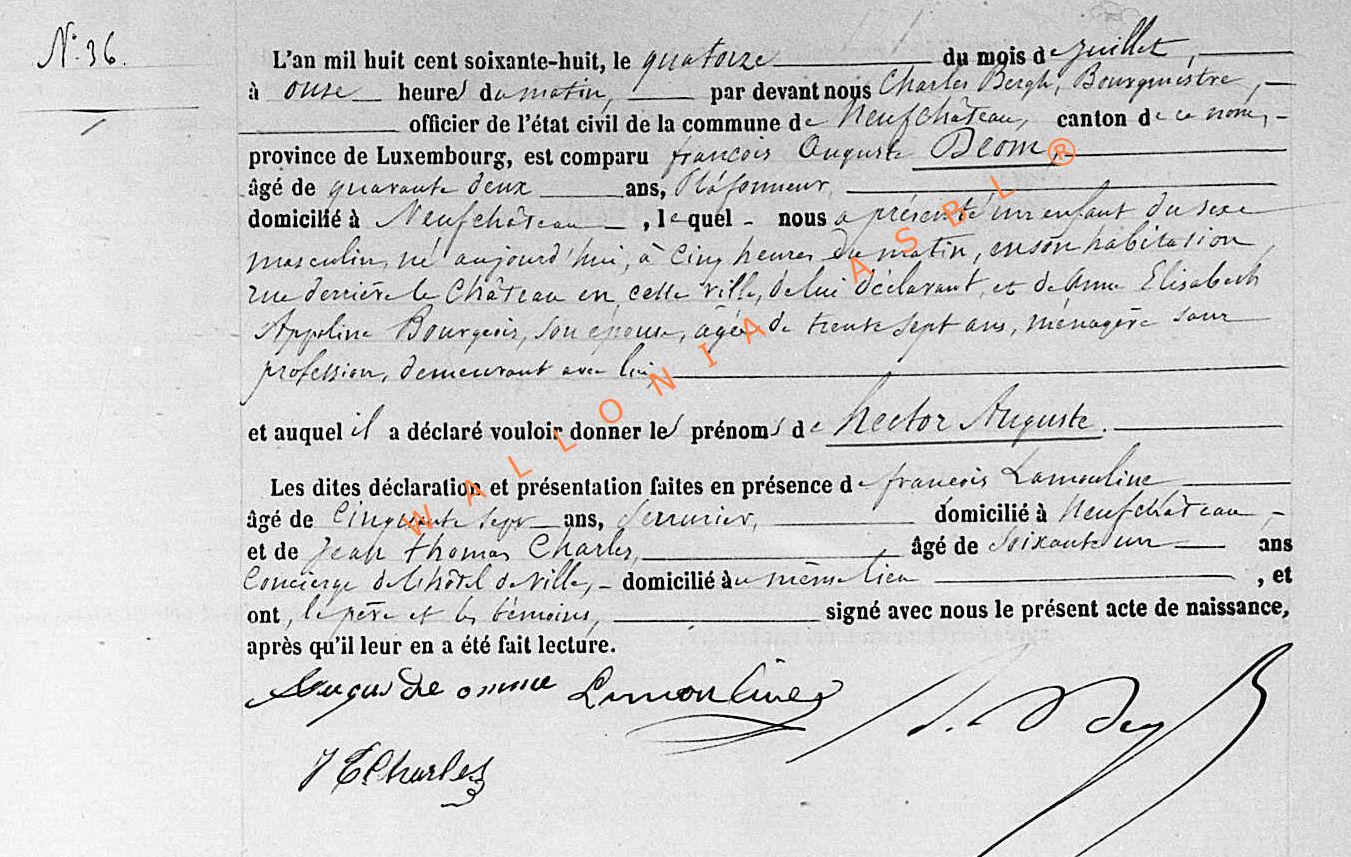 N° 36.
L'an mil huit cent soixante-huit, le quatorze du mois de juillet,
à onze heures du matin, par devant nous Charles Bergh, Bourgmestre,
officier de l'état civil de la commune de Neufchâteau, canton de ce nom,
province de Luxembourg, est comparu françois Auguste Deom,
âgé de quarante deux ans, Plafonneur,
domicilié à Neufchâteau, lequel nous a présenté un enfant du sexe
masculin, né aujourd'hui, à cinq heures du matin, en son habitation
rue derrière le Château en cette ville, de lui déclarant, et de Anne Elisabeth
Appoline Bourgeois, son épouse, âgée de trente sept ans, ménagère sans
profession, demeurant avec lui,
et auquel il a déclaré vouloir donner les prénoms de hector Auguste.
Les dites déclaration et présentation faites en présence de françois Lamouline
âgé de Cinquante sept ans, Serrurier, domicilié à Neufchâteau,
et de Jean thomas Charles, âgé de soixante un ans
Concierge de l'hôtel de ville, domicilié au même lieu , et
ont, le père et les témoins, signé avec nous le présent acte de naissance,
après qu'il leur en a été fait lecture.
Lamouline
J T Charles
WALLONIA ASBL ®